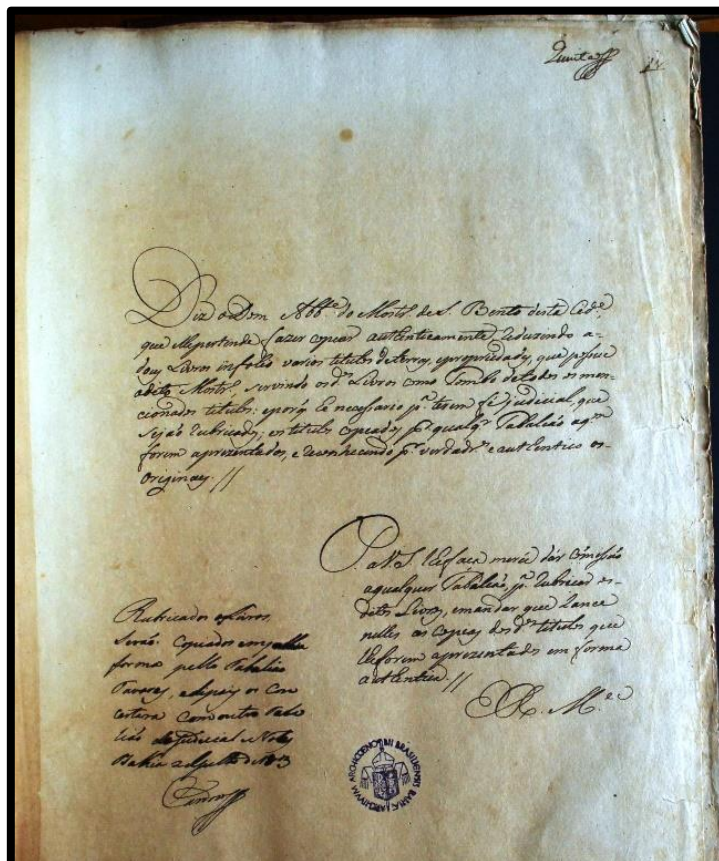 Diz o Dom Abb.e do Mostr.o de S. Bento desta Cid.e,
que elle pertende fazer copear authenticamente reduzindo a-
dous Livros in folio varios titulos de terras, e propriedades, que possue
o dito Mostr.o servindo os d.os Livros como Tombo de todos os men-
cionados titulos: e porq. he necessario p.a terem fé judicial, que
sejaõ rubricados; os titulos copeados p.r qualq.r Tabaliaõ a q.m
forem aprezentados, e reconhecendo p.r verdadr.os e authenticos os-
originaes. //
P. a V. S. lhe faça mercê dár comissaõ
a qualquer Tabaliaõ, p.a rubricar os-
ditos Livros, e mandar que lance
nelles as copeas dos d.os titulos que
lhe forem aprezentados em forma
authentica. //
E. R. M.ce
Rubricados os Livros
Seraõ copiados em
forma pello Tabaliaõ
Tavares, e depois os con
certara com outro Taba
liaõ do judicial e Notas
Bahia
ARCHIVUM ARCHIDIOECESIS BRASILIENSIS BAHIA